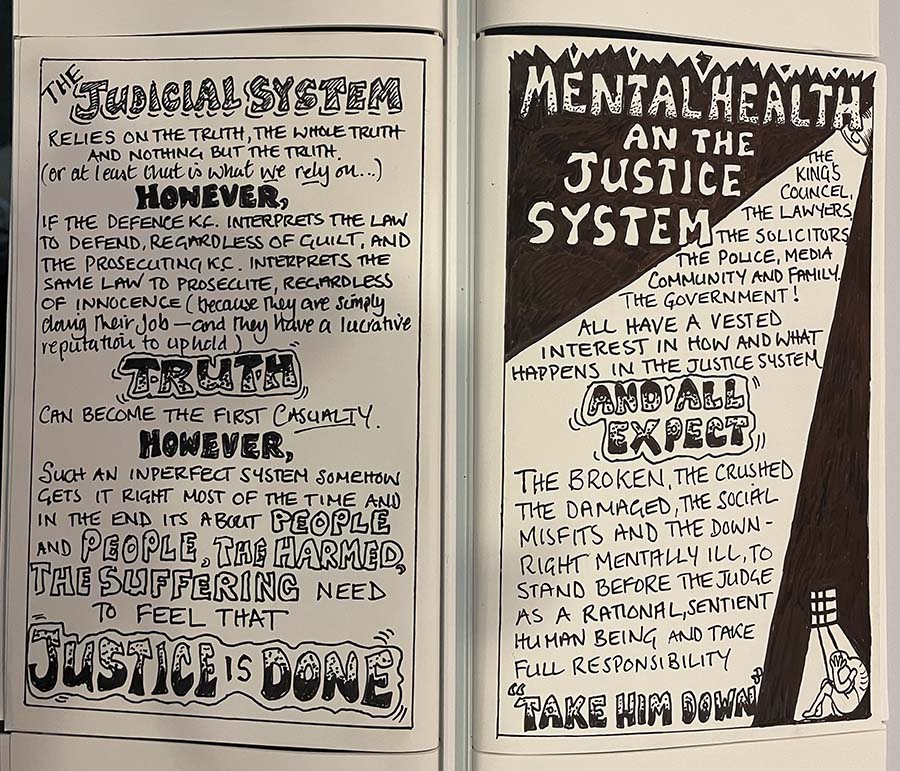 THE
JUDICIAL SYSTEM
RELIES ON THE TRUTH, THE WHOLE TRUTH
AND NOTHING BUT THE TRUTH.
(or at least that is what we rely on...)
HOWEVER,
IF THE DEFENCE K.C. INTERPRETS THE LAW
TO DEFEND, REGARDLESS OF GUILT, AND
THE PROSECUTING K.C. INTERPRETS THE
SAME LAW TO PROSECUTE, REGARDLESS
OF INNOCENCE (because they are simply
doing their job – and they have a lucrative
reputation to uphold)
TRUTH
CAN BECOME THE FIRST CASUALTY.
HOWEVER,
SUCH AN INPERFECT SYSTEM SOMEHOW
GETS IT RIGHT MOST OF THE TIME AND
IN THE END ITS ABOUT PEOPLE
AND PEOPLE, THE HARMED,
THE SUFFERING NEED
TO FEEL THAT
JUSTICE IS DONE
MENTAL HEALTH
AN THE
JUSTICE
SYSTEM
THE
KING'S
COUNCEL,
THE LAWYERS,
THE SOLICITORS
THE POLICE, MEDIA
COMMUNITY AND FAMILY.
THE GOVERNMENT!
ALL HAVE A VESTED
INTEREST IN HOW AND WHAT
HAPPENS IN THE JUSTICE SYSTEM
AND ALL
EXPECT
THE BROKEN, THE CRUSHED
THE DAMAGED, THE SOCIAL
MISFITS AND THE DOWN-
RIGHT MENTALLY ILL, TO
STAND BEFORE THE JUDGE
AS A RATIONAL, SENTIENT
HUMAN BEING AND TAKE
FULL RESPONSIBILITY
"TAKE HIM DOWN"